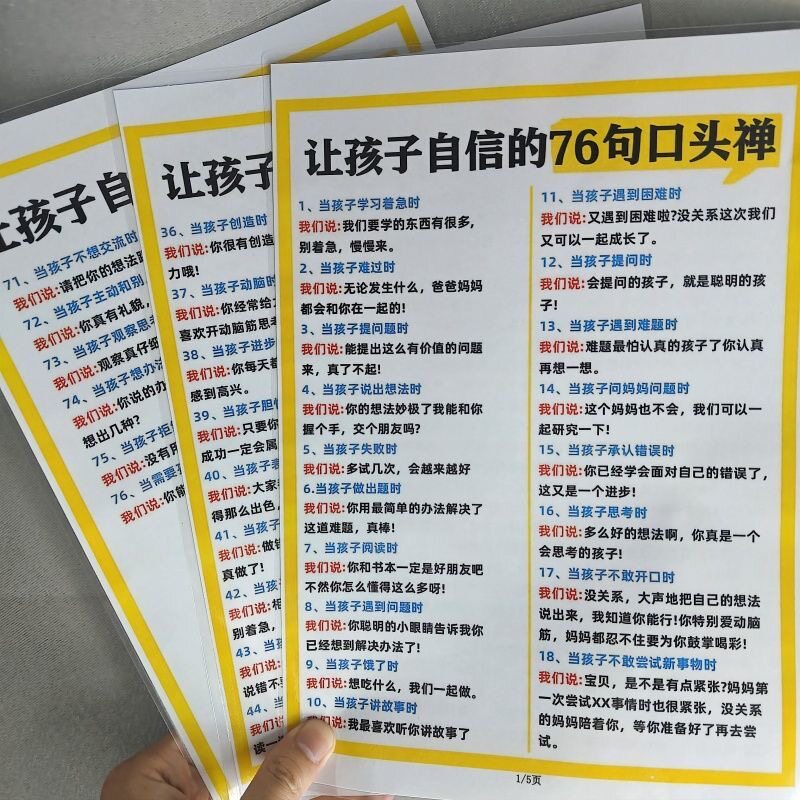 让孩子自信的76句口头禅
1、当孩子学习着急时
我们说:我们要学的东西有很多,
别着急，慢慢来。
2、当孩子难过时
我们说:无论发生什么，爸爸妈妈
都会和你在一起的!
3、当孩子提问题时
我们说:能提出这么有价值的问题
来，真了不起!
4、当孩子说出想法时
我们说:你的想法妙极了我能和你
握个手，交个朋友吗?
5、当孩子失败时
我们说:多试几次，会越来越好
6.当孩子做出题时
我们说:你用最简单的办法解决了
这道难题，真棒!
7、当孩子阅读时
我们说:你和书本一定是好朋友吧
不然你怎么懂得这么多呀!
8、当孩子遇到问题时
我们说:你聪明的小眼睛告诉我你
已经想到解决办法了!
9、当孩子饿了时
我们说:想吃什么，我们一起做。
10、当孩子讲故事时
我们说:我最喜欢听你讲故事了
11、当孩子遇到困难时
我们说:又遇到困难啦?没关系这次我们
又可以一起成长了。
12、当孩子提问时
我们说:会提问的孩子，就是聪明的孩
子!
13、当孩子遇到难题时
我们说:难题最怕认真的孩子了你认真
再想一想。
14、当孩子问妈妈问题时
我们说:这个妈妈也不会，我们可以一
起研究一下!
15、当孩子承认错误时
我们说:你已经学会面对自己的错误了,
这又是一个进步!
16、当孩子思考时
我们说:多么好的想法啊，你真是一个
会思考的孩子!
17、当孩子不敢开口时
我们说:没关系，大声地把自己的想法
说出来，我知道你能行!你特别爱动脑
筋，妈妈都忍不住要为你鼓掌喝彩!
18、当孩子不敢尝试新事物时
我们说:宝贝，是不是有点紧张?妈妈第
一次尝试XX事情时也很紧张，没关系
的妈妈陪着你，等你准备好了再去尝
试。
1/5页
让孩子
36、当孩子创造时
我们说:你很有创造
力哦!
37、当孩子动脑时
我们说:你经常给
喜欢开动脑筋思考
38、当孩子进步
我们说:你每天
感到高兴。
39、当孩子胆
我们说:只要你
成功一定会属
40、当孩子
我们说:大家
得那么出色,
41、当孩子
我们说:做
真做了!
42、当孩
我们说:相
别着急,
43、当孩
我们说:
说错不
44、当
我们
读一
让孩子自
71、当孩子不想交流时
我们说:请把你的想法
72、当孩子主动和别
我们说:你真有礼貌,
73、当孩子观察思考
我们说:观察真仔细
74、当孩子想办法
我们说:你说的办
想出几种?
75、当孩子拒
我们说:没有
76、当需要
我们说:你能